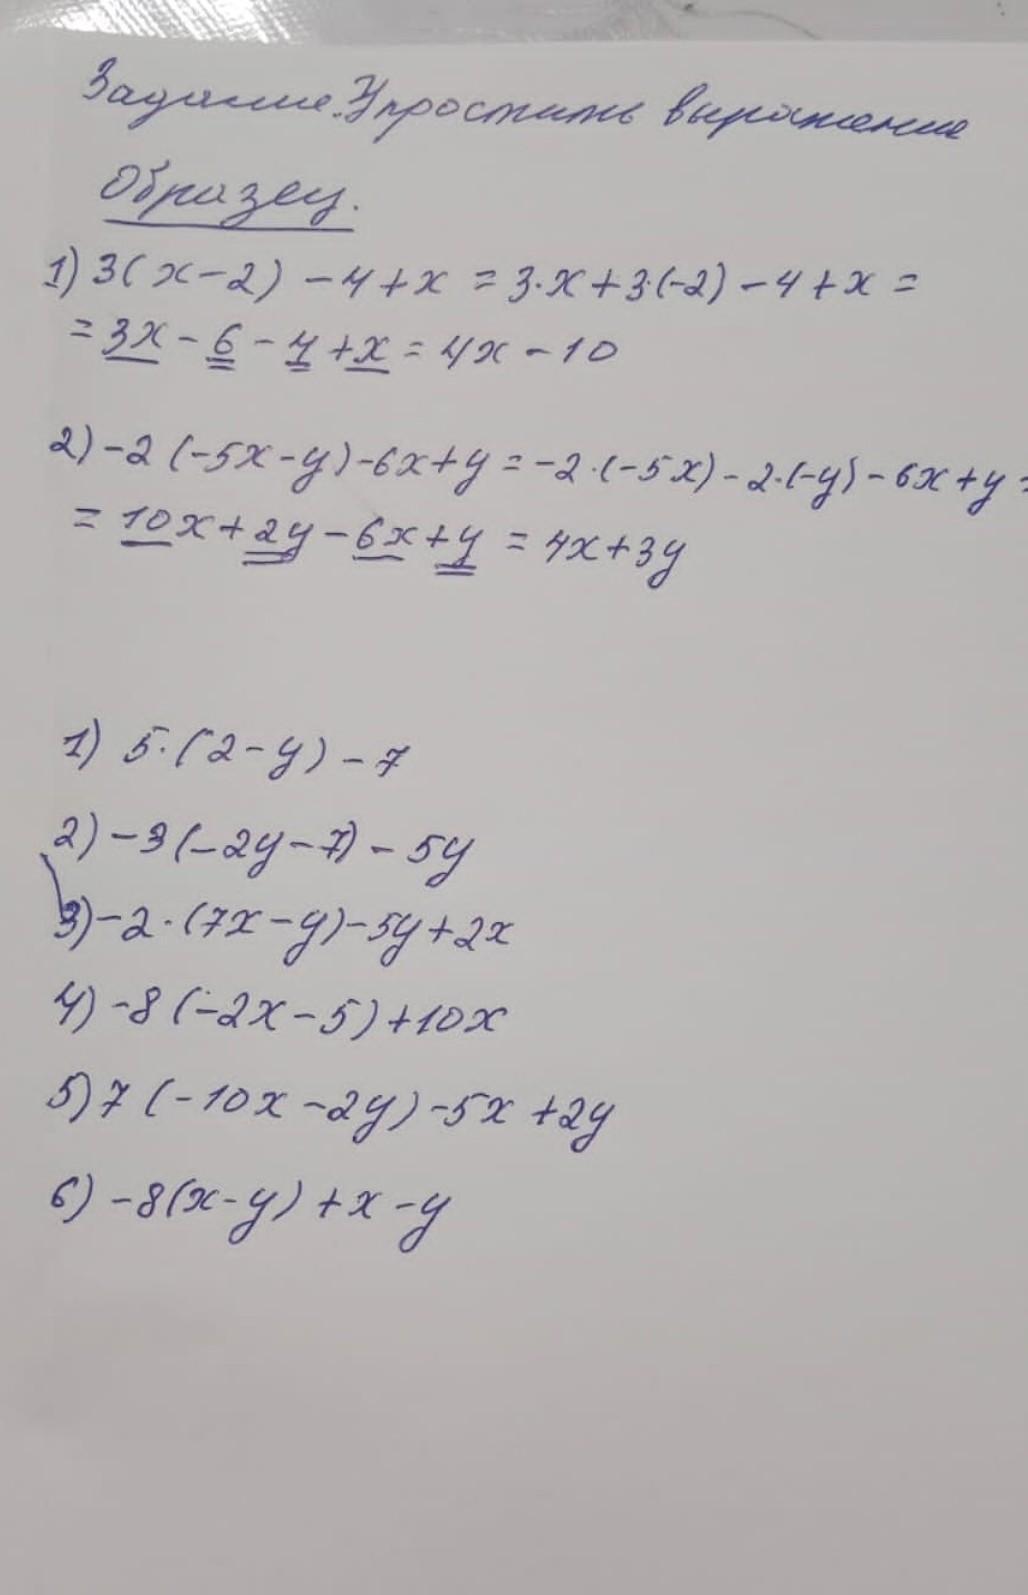 Задание. Упростить выражение
Образец.
1) 3(x-2) -4+x = 3·x+3·(-2) -4+x =
= 3x - 6 - 4 + x = 4x - 10
2) -2(-5x-y)-6x+y = -2·(-5x)-2·(-y)-6x+y =
= 10x+2y-6x+y = 4x+3y
1) 5·(2-y)-7
2) -3(-2y-7)-5y
3) -2·(7x-y)-5y+2x
4) -8(-2x-5)+10x
5) 7(-10x-2y)-5x+2y
6) -8(x-y)+x-y